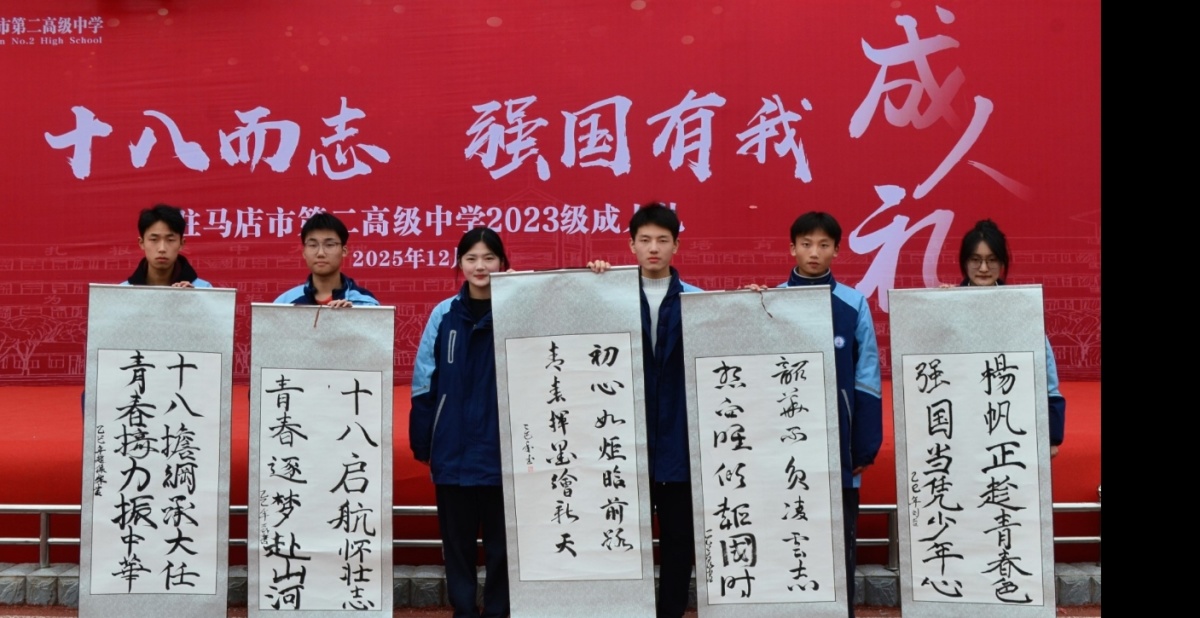 市第二高级中学
n No.2 High School
十八而志 强国有我
成人礼
驻马店市第二高级中学2023级成人礼
2025年12月
十八擔綱承大任
青春力振中華
乙巳年
十八启航怀壮志
青春逐梦赴山河
乙巳年
初心如炬前路
青春揮墨繪新天
乙巳
韶華不负凌云志
報國时
楊帆正趁青春色
强国当凭少年心
乙巳年